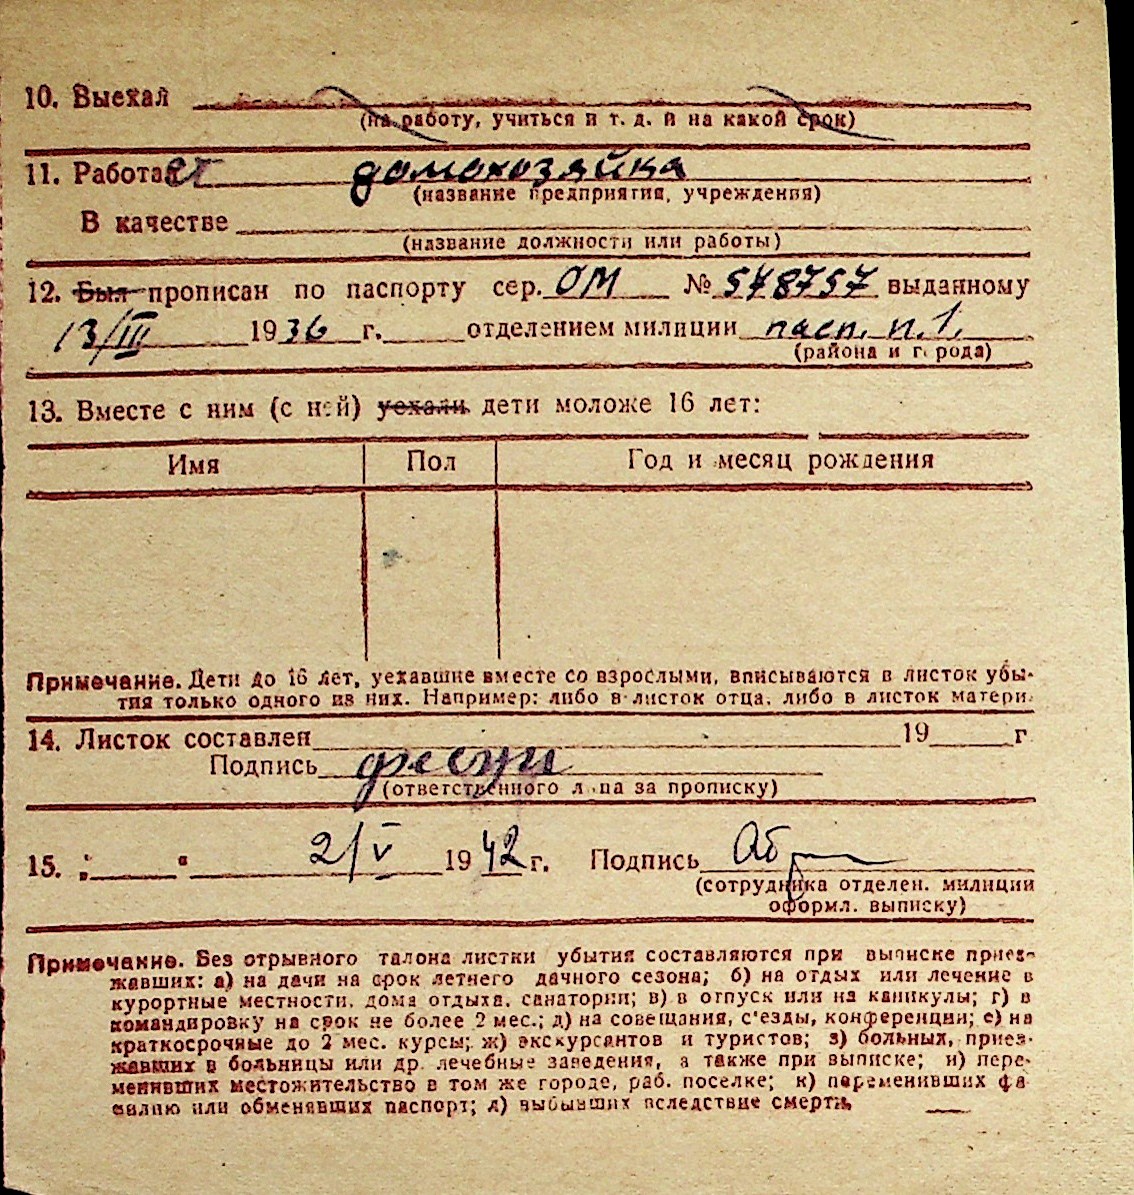 10. Выехал
(на работу, учиться и т. д. и на какой срок)
11. Работает домохозяйка
(название предприятия, учреждения)
В качестве
(название должности или работы)
12. Был прописан по паспорту сер. ОМ № 548757 выданному
13/III 1936 г. отделением милиции пасп. п. 1.
(района и города)
13. Вместе с ним (с ней) уехали дети моложе 16 лет:
Имя Пол Год и месяц рождения
Примечание. Дети до 16 лет, уехавшие вместе со взрослыми, вписываются в листок убы-
тия только одного из них. Например: либо в листок отца, либо в листок матери.
14. Листок составлен 19 г
Подпись
(ответственного лица за прописку)
15. " " 2/V 1942 г. Подпись
(сотрудника отделен. милиции
оформл. выписку)
Примечание. Без отрывного талона листки убытия составляются при выписке приез-
жавших: а) на дачи на срок летнего дачного сезона; б) на отдых или лечение в
курортные местности, дома отдыха, санатории; в) в отпуск или на каникулы; г) в
командировку на срок не более 2 мес.; д) на совещания, с'езды, конференции; е) на
краткосрочные до 2 мес. курсы; ж) экскурсантов и туристов; з) больных, приез-
жавших в больницы или др. лечебные заведения, а также при выписке; и) пере-
менивших местожительство в том же городе, раб. поселке; к) переменивших фа
милию или обменявших паспорт; л) выбывших вследствие смерти.